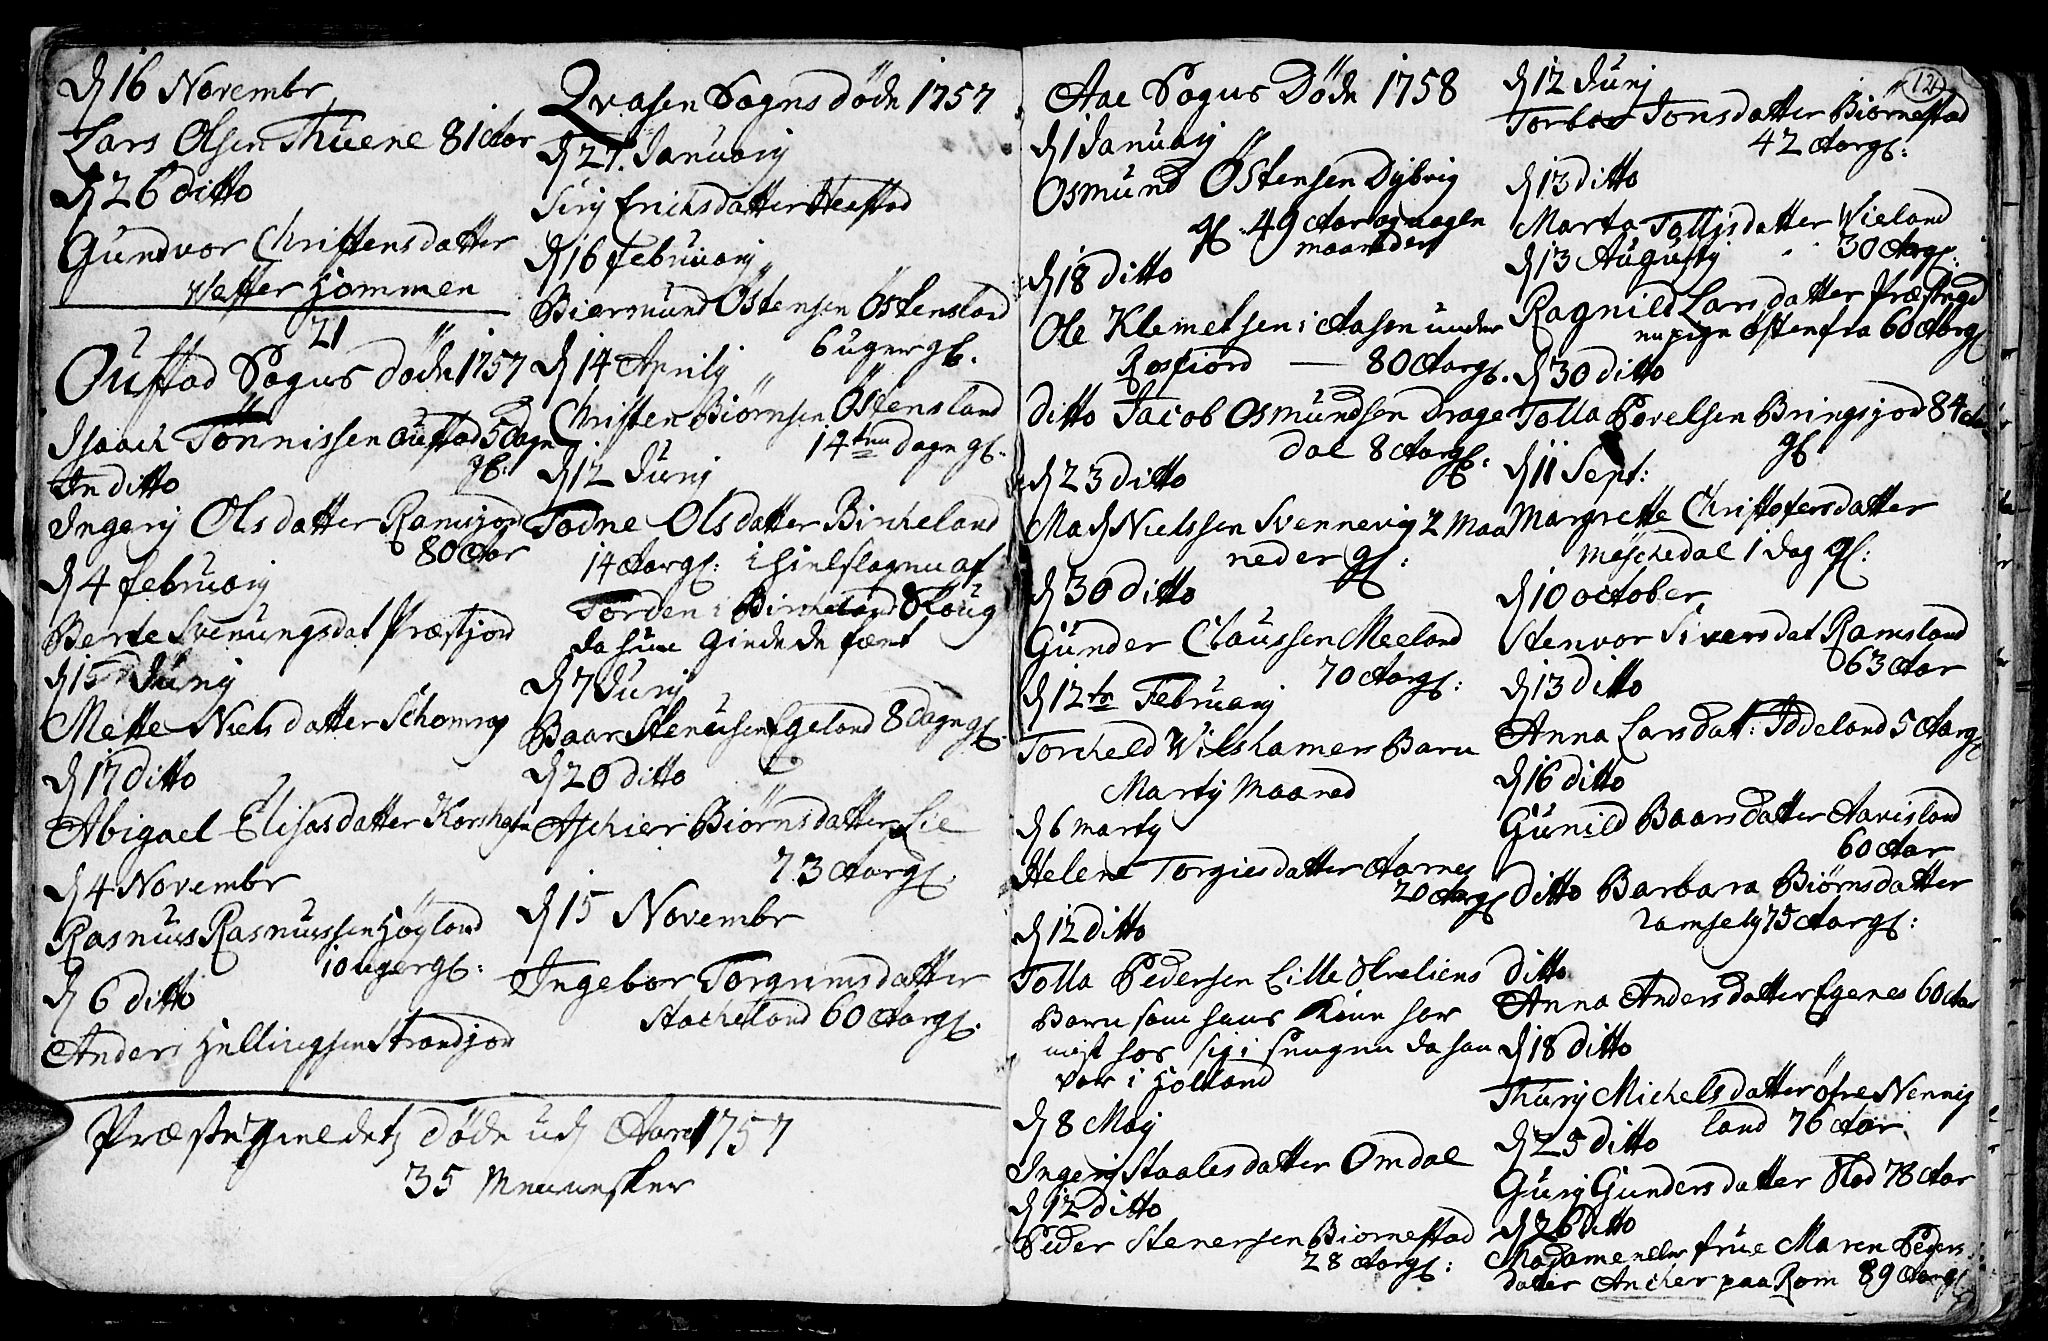 d 16 Novembr
Lars Olsen Thuene 81 Aar
d 26 ditto
Gundvor Christensdatter
Vester Hommen
21
Oustad Sogns döde 1757
Isaach Tönnissen Oustad 5 dage
gl.
In ditto
Ingerj Olsdatter Ramsjord
80 Aar
d 4 februarij
Berte Svenungsdat Præstjord
d 15 Junij
Mette Nielsdatter
d 17 ditto
Abigael Elisasdatter Korshafn
d 4 Novembr
Rasmus Rasmussen Högland
10 uger gl:
d 6 ditto
Anders Hellingsen Strandjord
Qvasen Sogns döde 1757
d 27. Januarij
Sirj Erichsdatter
d 16 februarij
Biermund Östensen Östensland
6 uger gl.
d 14 Aprilij
Christen Biörnsen Östensland
14ten dage gl.
d 12 Junij
Todne Olsdatter Bircheland
14 Aar gl: ihielslagen af
Torden i Bircheland Skoug
da hun giedede fæet
d 7 Junij
Baar Stenersen Egeland 8 dage gl.
d 20 ditto
Aschier Biörnsdatter Lie
73 Aar gl.
d 15 Novembr
Ingebor Torgrimsdatter
Stacheland 60 Aar gl.
Præstegieldets döde udj Aaret 1757
35 Mennesker
Aae Sogns Döde 1758
d 1 Januarij
Osmund Östensen Dybvig
gl. 49 Aar og nogen
maaneder
d 18 ditto
Ole Klemetsen i Aasen under
Rosfiord — 80 Aar gl.
ditto Jacob Osmundsen Drage
dal 8 Aar gl.
d 23 ditto
Mads Nielssen Svennevig 2 Maa
neder gl:
d 30 ditto
Gunder Claussen Meeland
70 Aar gl:
d 12te Februarij
Torkeld Wilshamers Barn
Martij Maaned
d 6 Martij
Helene Torgiesdatter Aarnes
20 Aar gl
d 12 ditto
Tolla Pedersen Lille Svaliens
Barn som hans Kone har
mist hos sig i Sengen da han
var i Holland
d 8 Maij
Ingerj Staalesdatter Omdal
d 12 ditto
Peder Stenersen Biörnestad
28 Aar gl:
121
d 12 Junij
Torbor Tonsdatter Biörnestad
42 Aar gl:
d 13 ditto
Marta Tollijsdatter Vieland
30 Aar gl:
d 13 Augustij
Ragnild Larsdatter Præstegd
en pige östenfra 60 Aar gl
d 30 ditto
Tolla Povelsen Bringsjord 84 Aar
gl
d 11 Sept:
Margrette Christofersdatter
Möschedal 1 dag gl:
d 10 october
Stenvor Siversdat Ramsland
63 Aar
d 13 ditto
Anna Larsdat: Iddeland 5 Aar gl
d 16 ditto
Gunild Baarsdatter Aavisland
60 Aar
ditto Barbara Biörnsdatter
75 Aar gl:
ditto
Anna Andersdatter Egenes 60 Aar
d 18 ditto
Thurj Michelsdatter öfre Nennig
land 76 Aar
d 25 ditto
Gurj Gundersdatter 78 Aar
d 26 ditto
Madame eller frue Maren Peders
datter Ancher paa Rom 89 Aar gl